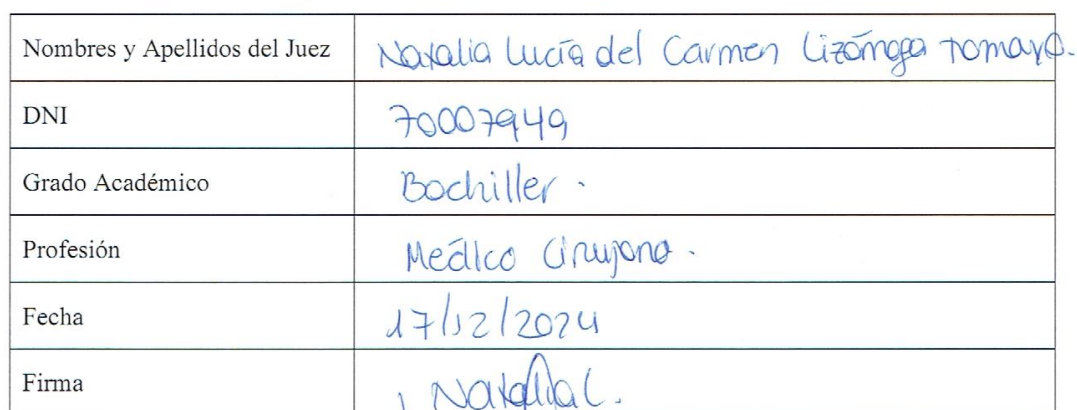 Nombres y Apellidos del Juez Natalia Lucía del Carmen Lizárraga Tomaya.
DNI 70007949
Grado Académico Bachiller.
Profesión Medico Cirujano.
Fecha 17/12/2024
Firma Natalia L.